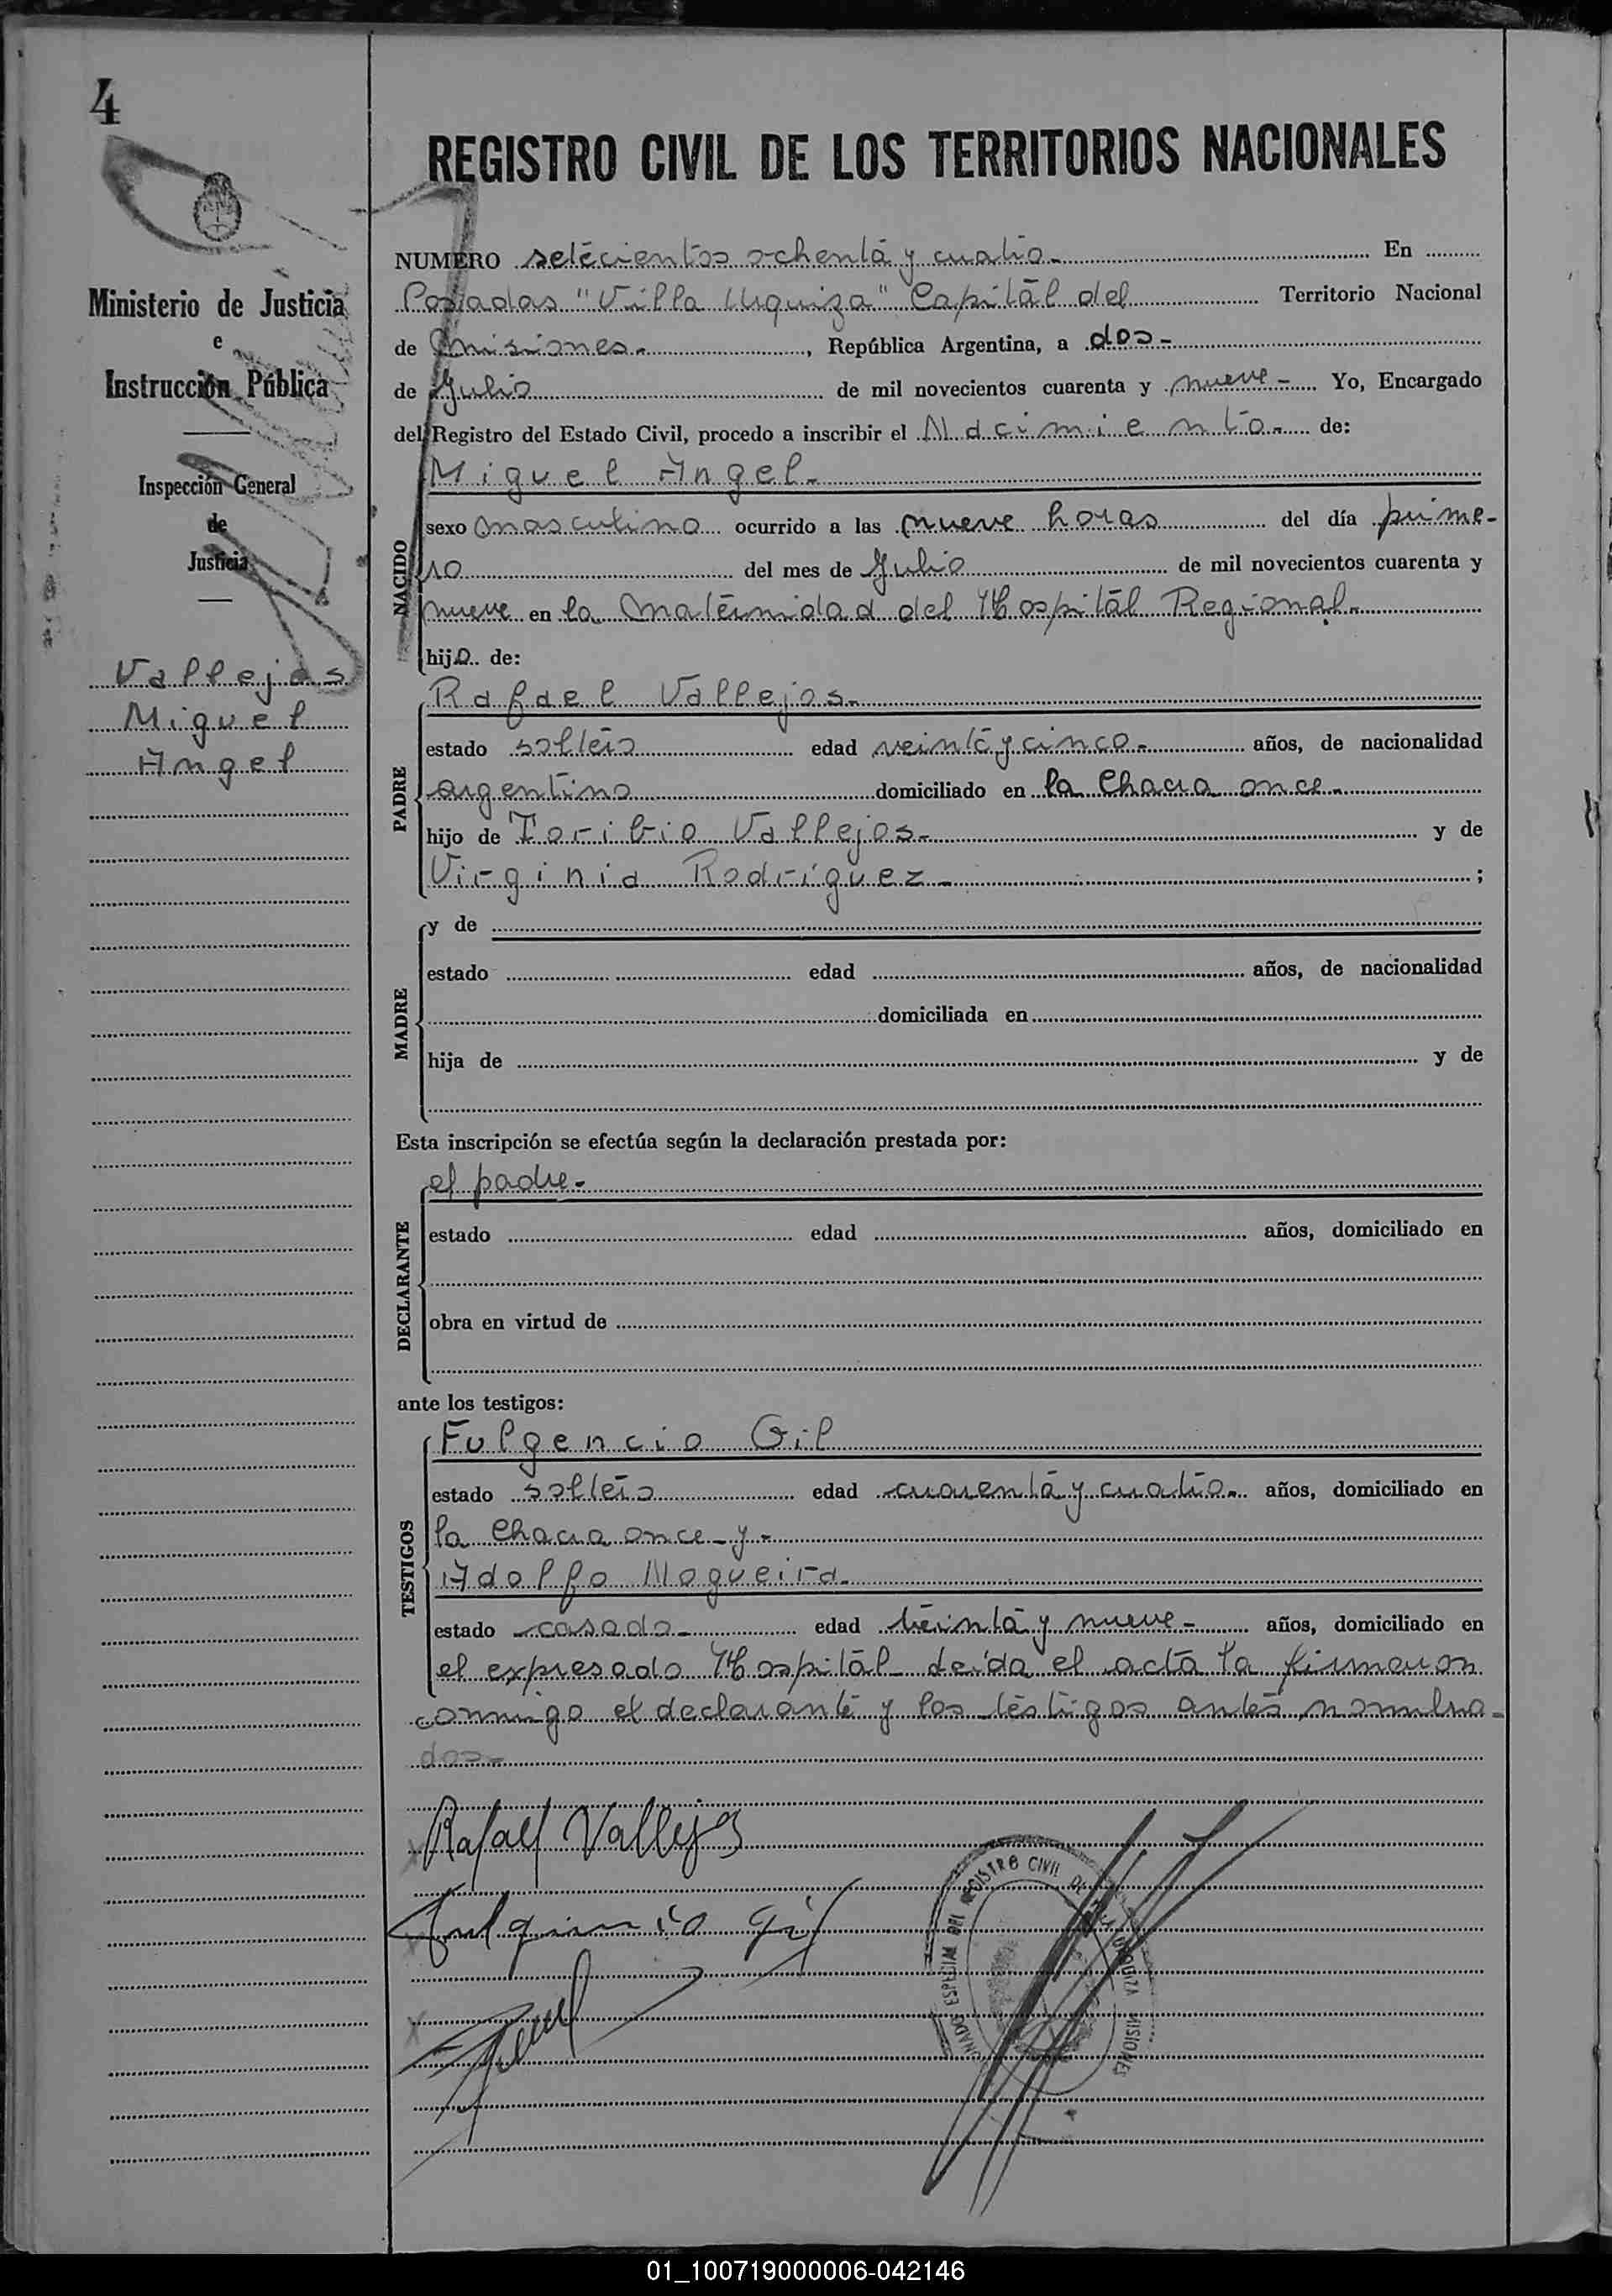 4
REGISTRO CIVIL DE LOS TERRITORIOS NACIONALES
Ministerio de Justicia
e
Instrucción Pública
Inspección General
de
Justicia
Vallejos
Miguel
Angel
NUMERO setecientos ochenta y cuatro.- En
Posadas "Villa Urquiza" Capital del Territorio Nacional
de Misiones.-, República Argentina, a dos-
de Julio de mil novecientos cuarenta y nueve- Yo, Encargado
del Registro del Estado Civil, procedo a inscribir el Nacimiento.- de:
NACIDO
Miguel Angel.-
sexo masculino ocurrido a las nueve horas del día prime-
ro del mes de Julio de mil novecientos cuarenta y
nueve en la Maternidad del Hospital Regional.-
hijo de:
PADRE
Rafael Vallejos.-
estado soltero edad veinte y cinco.- años, de nacionalidad
argentino domiciliado en la Chacra once.-
hijo de Toribio Vallejos.- y de
Virginia Rodríguez.- ;
MADRE
y de
estado edad años, de nacionalidad
domiciliada en
hija de y de
Esta inscripción se efectúa según la declaración prestada por:
DECLARANTE
el padre.-
estado edad años, domiciliado en
obra en virtud de
ante los testigos:
TESTIGOS
Fulgencio Gil
estado soltero edad cuarenta y cuatro.- años, domiciliado en
la Chacra once y-
Adolfo Nogueira.-
estado casado.- edad treinta y nueve- años, domiciliado en
el expresado Hospital- Leída el acta la firmaron
conmigo el declarante y los testigos antes nombra-
dos-
Rafael Vallejos
Fulgencio Gil
REGISTRO CIVIL DE VILLA URQUIZA MISIONES
01_100719000006-042146